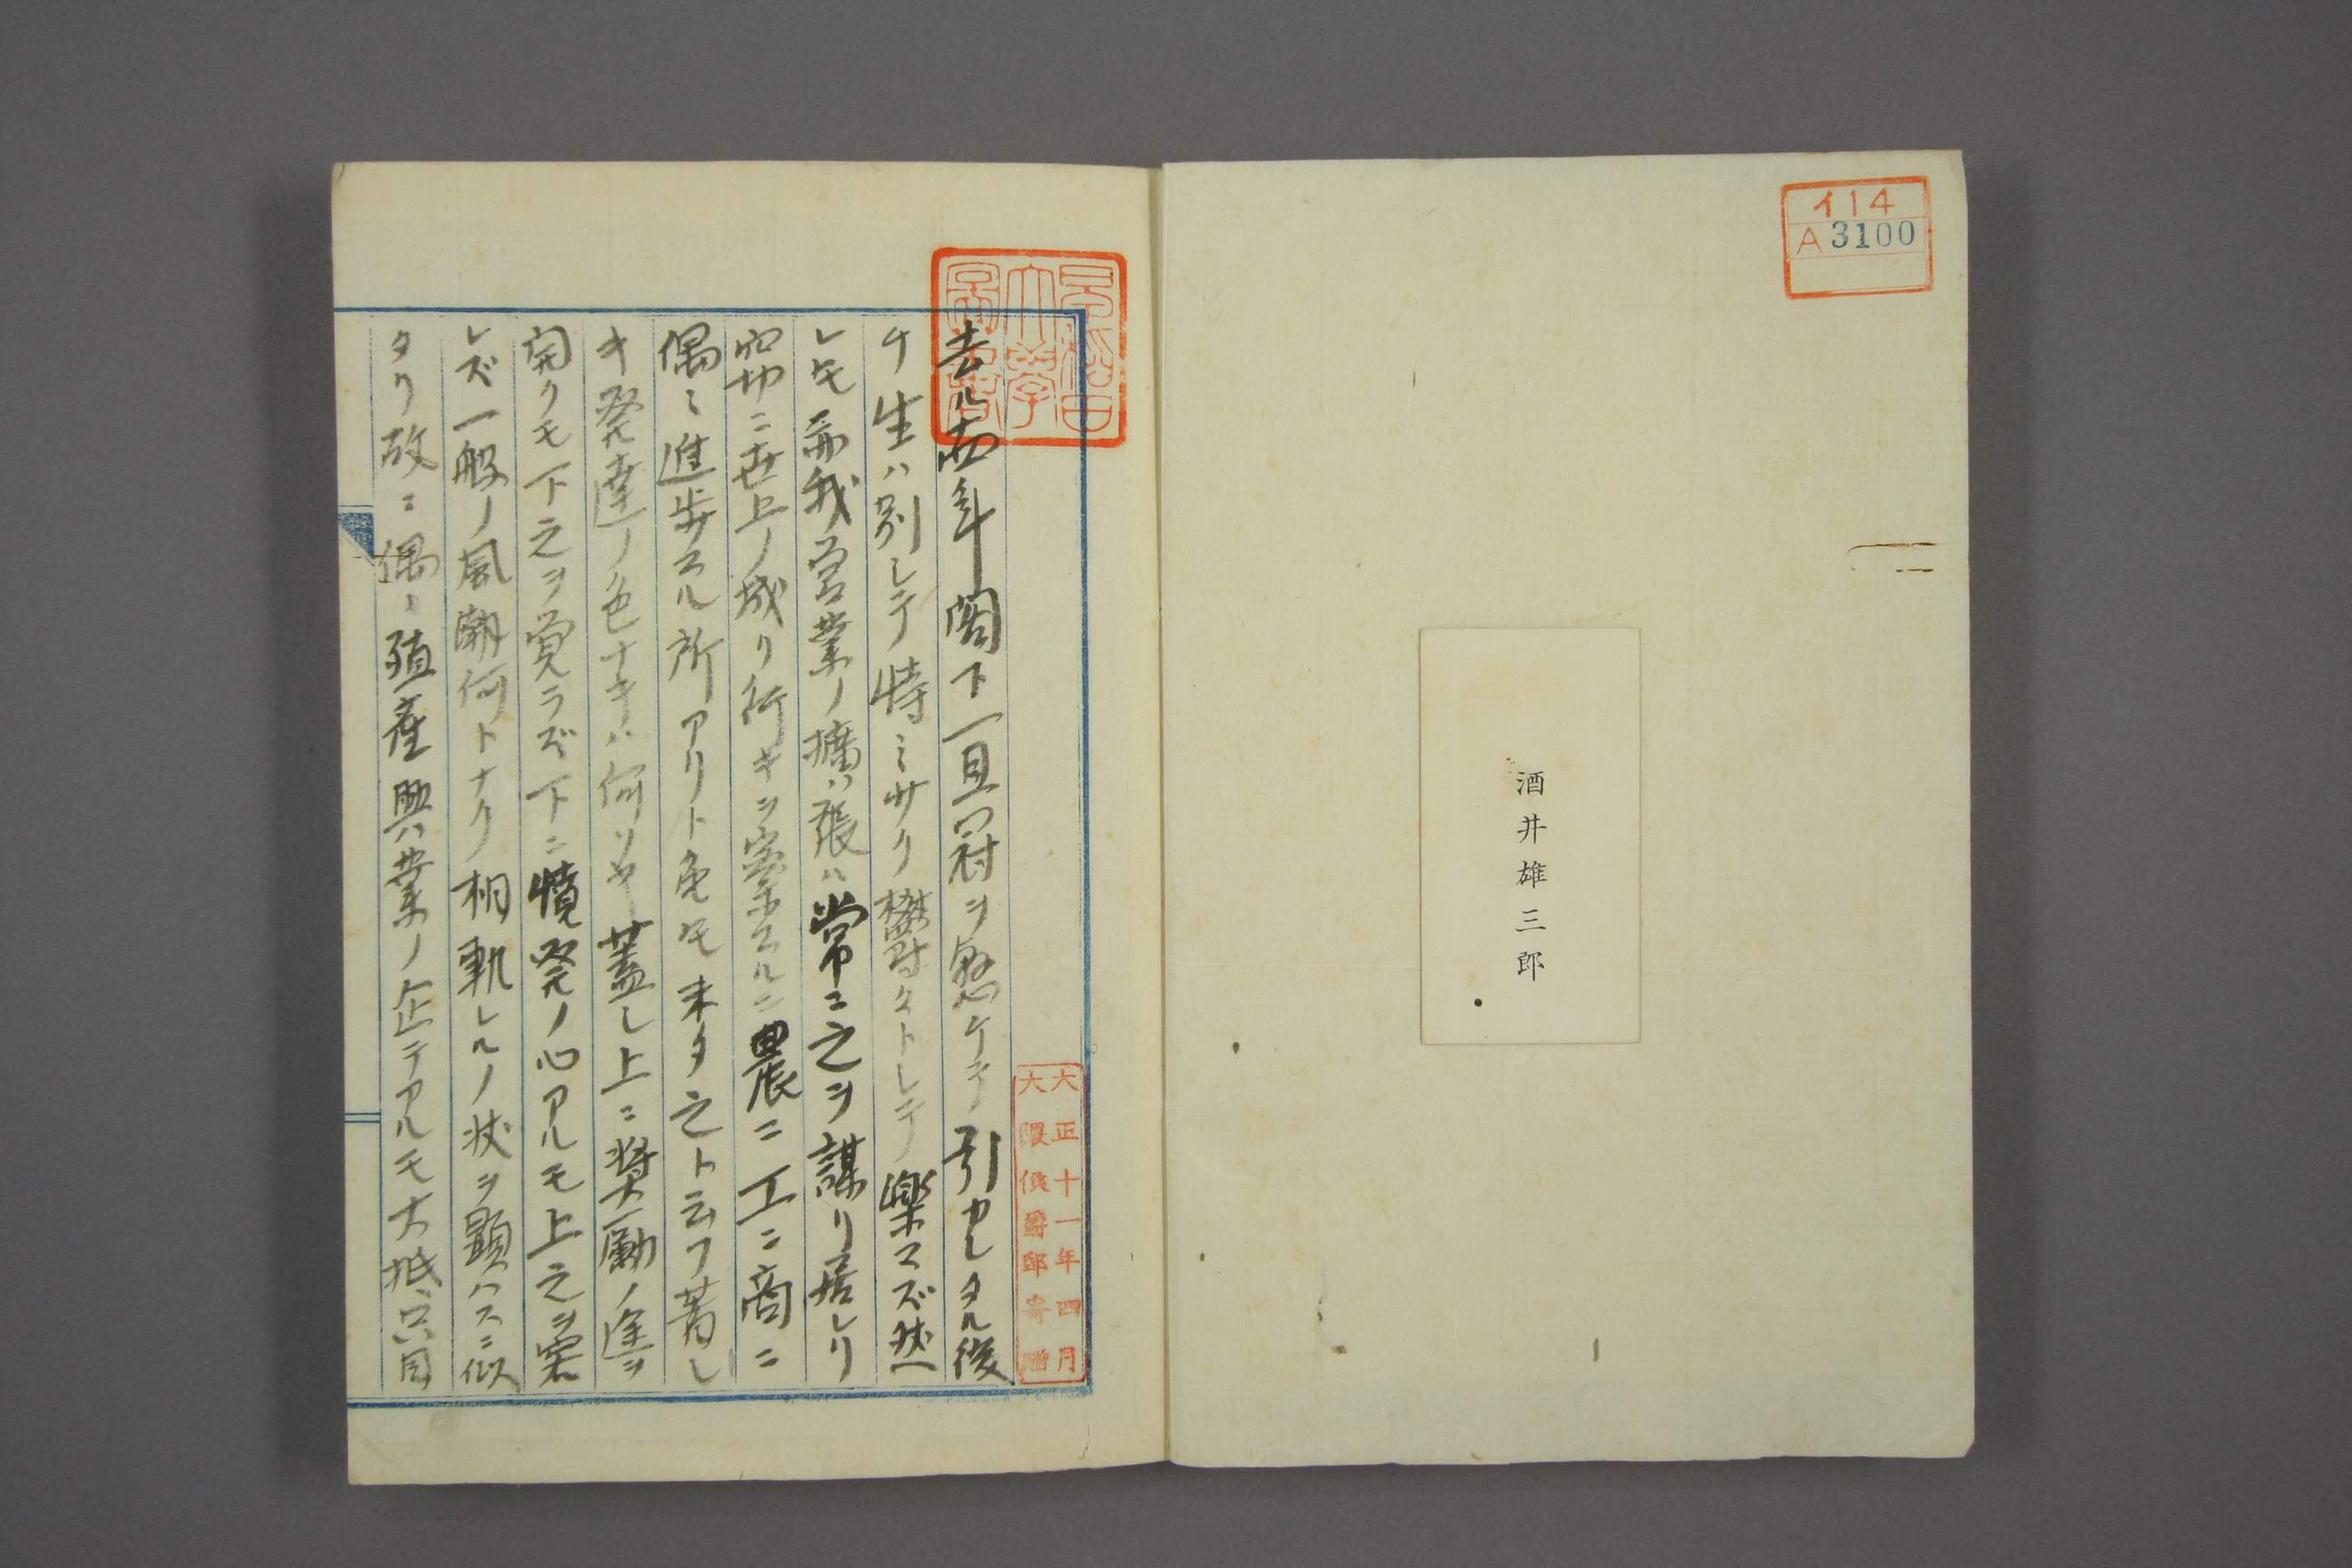 イ14
A 3100
酒井雄三郎
早稲田
大學
圖書
大正十一年四月
大隈侯爵邸寄贈
去ル 年閣下一旦冠ヲ懸ケテ引カレタル後
チ生ハ別レテ特ミサク鬱々トレテ樂マズ然
レ𪜈爾我営業ノ擴張ハ常ニ之ヲ謀リ居レリ
窃ニ世上ノ成リ行キヲ案スルニ農ニ工ニ商ニ
偶々進歩スル所アリト兔𪜈未タ之ト云フ著し
キ発達ノ色ナキハ何ソヤ蓋し上ニ奨励ノ途ヲ
開クモ下之ヲ覚ラズ下ニ憤発ノ心アルモ上之ヲ察
レズ一般ノ風潮何トナク相軋レルノ状ヲ顕ハスニ似
タリ故ニ偶々殖産興業ノ企テアルモ大抵只目